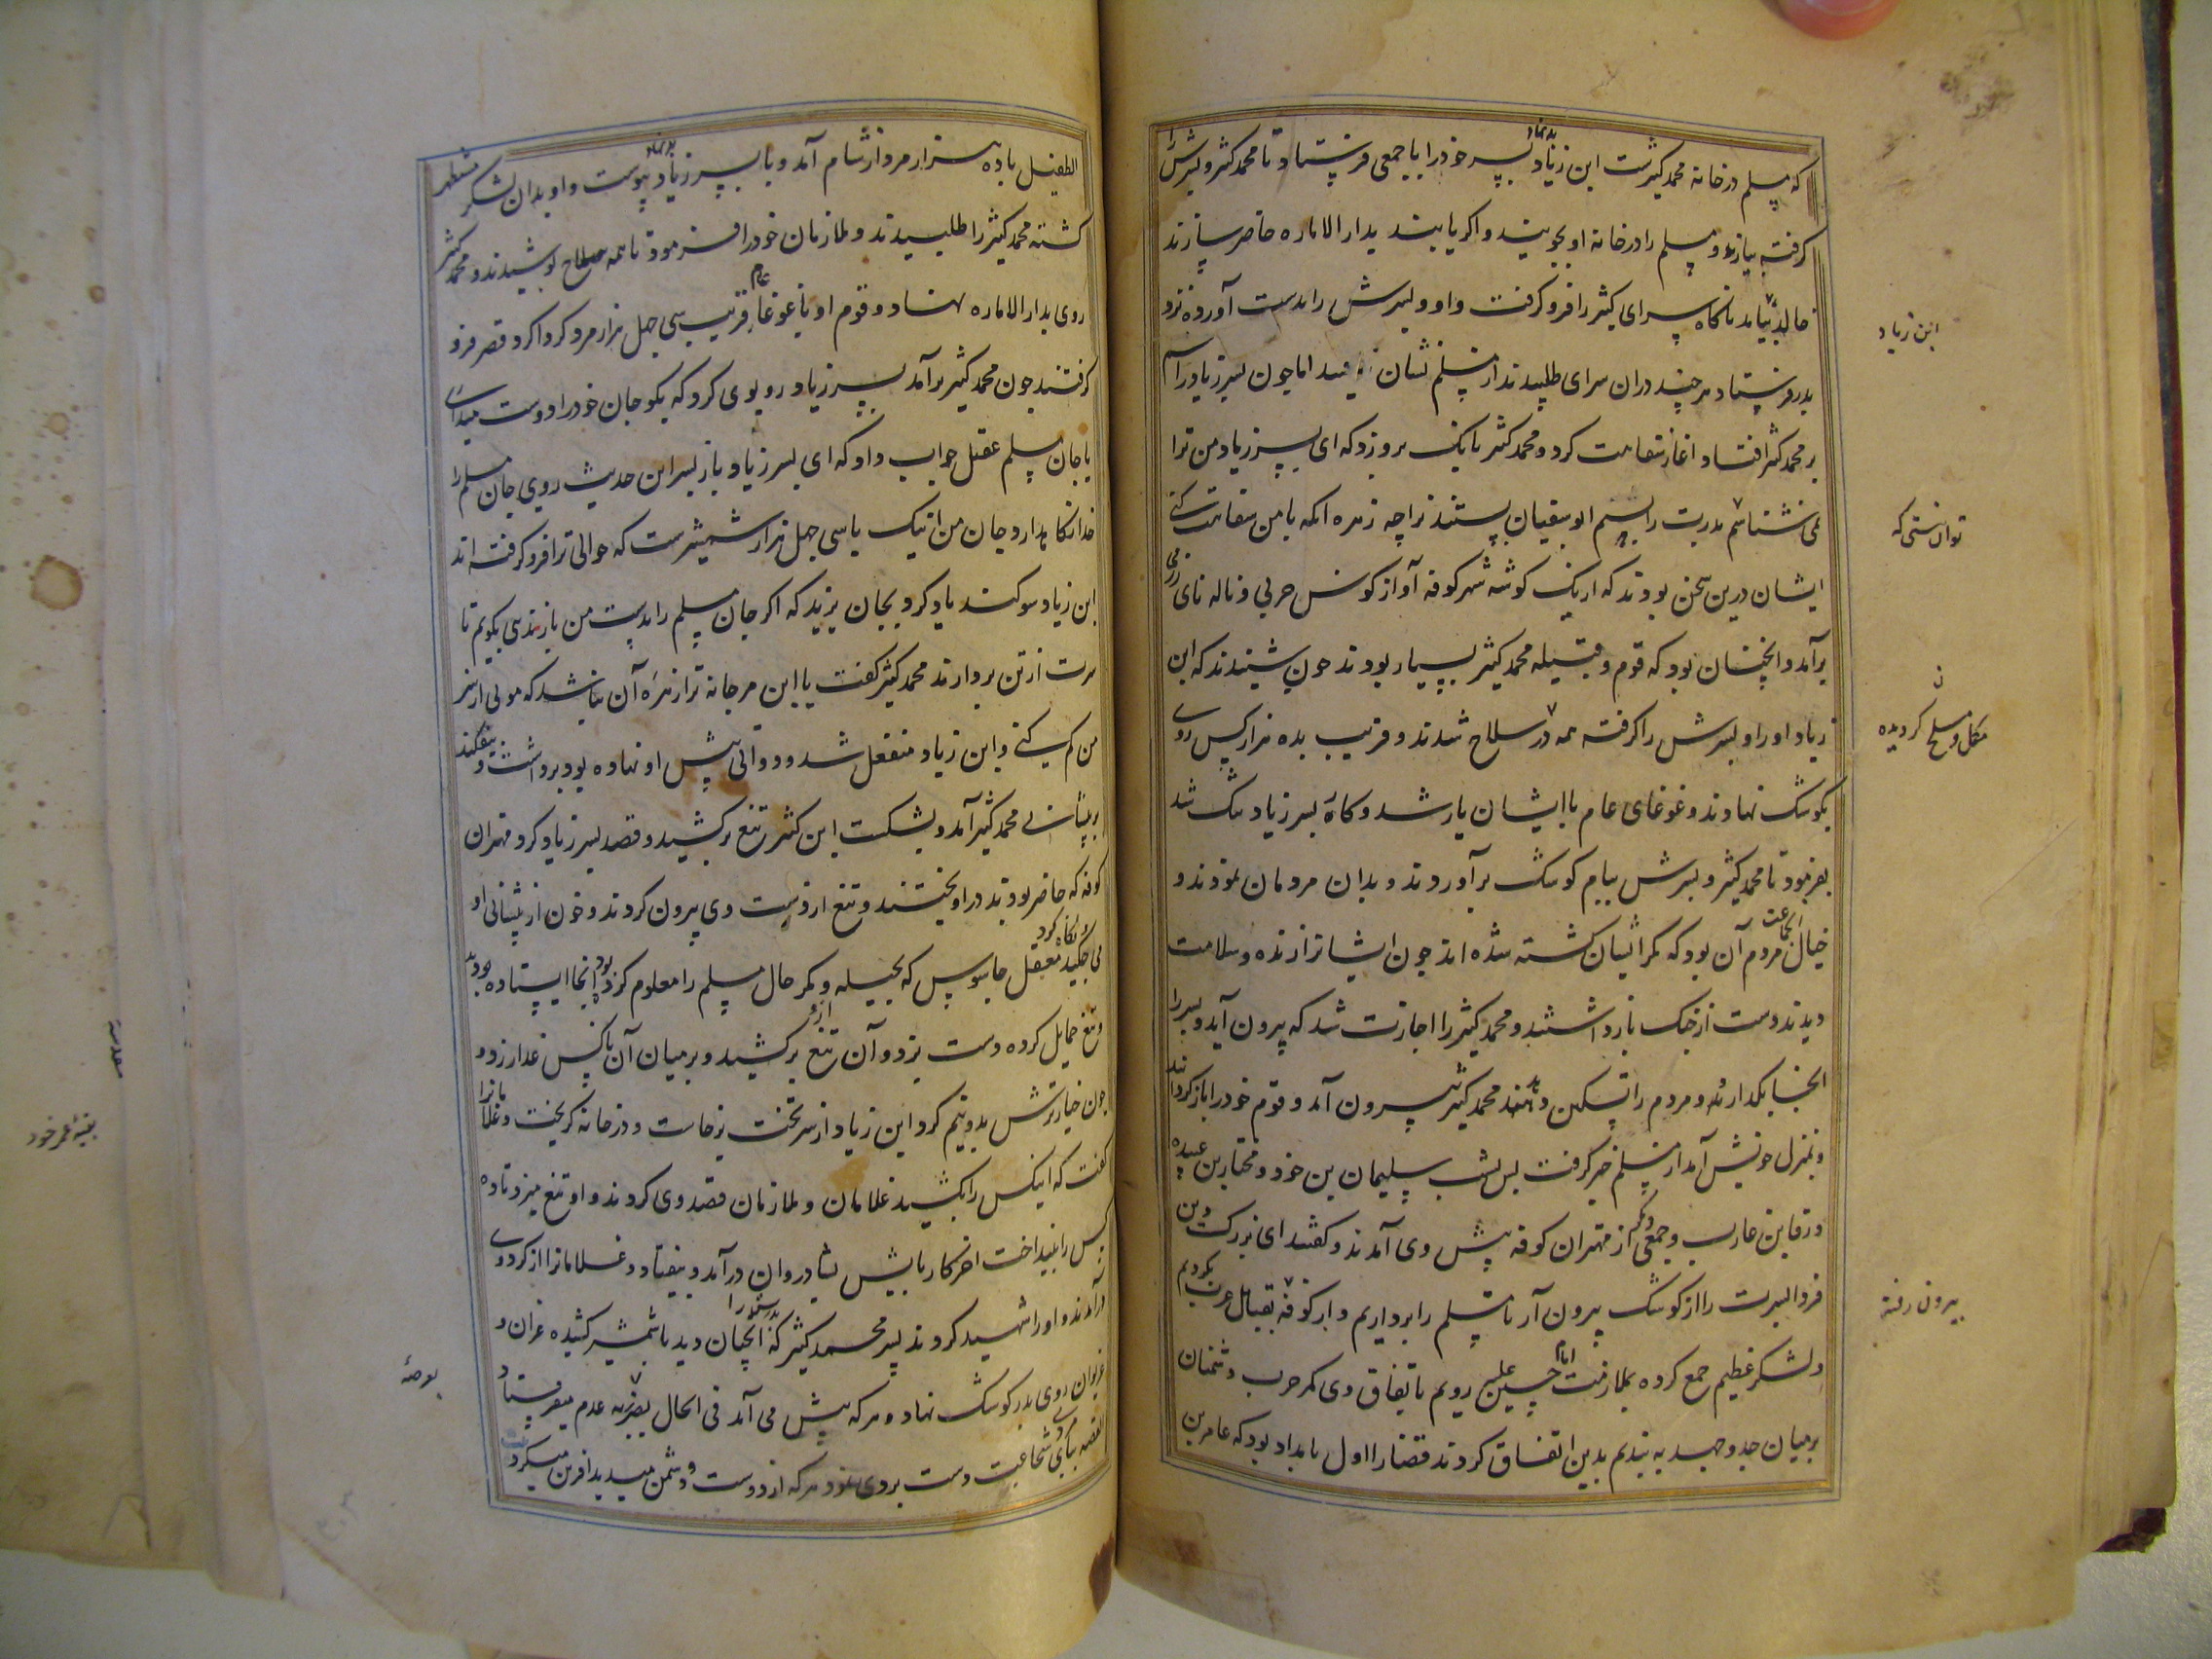 که مسلم در خانه محمد کثیرست ابن زیاد بدنهاد پسر خود را با جمعی فرستاد تا محمد کثیر و پسرش را
کرفته بیارند و مسلم را در خانه او بجویند و اکر یابند بدار الاماره حاضر سازند
خالد بیامد ناکاه سرای کثیر را فرو کرفت و او و پسرش را بدست آورده نزد
ابن زیاد
پدر فرستاد هر چند دران سرای طلبیدند از مسلم نشان اما چون پسر زیاد را چشم
بر محمد کثیر افتاد اغاز سفاهت کرد و محمد کثیر بانک برو زد که ای پسر زیاد من ترا
می شناسم پدرت را بستم ابو سفیان بستند ترا چه زهره انکه با من سفاهت کنی
توانستی که
ایشان درین سخن بودند که از یک کوشه شهر کوفه آواز کوس حربی و ناله نای رزمی
برآمد و انچنان بود که قوم و قبیله محمد کثیر بسیار بودند چون شنیدند که ابن
زیاد او را و پسرش را کرفته همه در سلاح شدند و قریب بده هزار کس روی
مکمل و مسلح کردیده
بکوشک نهادند و غوغای عام با ایشان یار شد و کار بر پسر زیاد تنک شد
بفرمود تا محمد کثیر و پسرش ببام کوشک برآوردند و بدان مردمان نمودند و
خیال انجماعت مردم آن بود که مکر ایشان کشته شده اند چون ایشانرا زنده و سلامت
دیدند دست از جنک بازداشتند و محمد کثیر را اجازت شد که بیرون آید و پسر را
انجا بکدارد و مردم را تسکین دهد محمد کثیر بیرون آمد و قوم خود را باز کردانید
و بمنزل خویش آمد از مسلم خبر کرفت پس شب سلیمان بن خرد و مختار بن عبیده
و رقا بن عازب و جمعی دیکر از مهتران کوفه پیش وی آمدند و کفتند ای بزرک دین
فردا پسرت را از کوشک بیرون آر تا مسلم را برداریم و از کوفه بقبایل عرب بکردیم
بیرون رفته
و لشکر عظیم جمع کرده بملازمت امام حسین علی رویم تا باتفاق وی کمر حرب دشمنان
بر میان جد و جهد به بندیم بدین اتفاق کردند قضا را اول بامداد بود که عامر بن
الطفیل با ده هزار مرد از شام آمد و با پسر زیاد بدنهاد پیوست و او بدان لشکر مستظهر
کشته محمد کثیر را طلبیدند و ملازمان خود را فرمود تا همه سلاح پوشیدند و محمد کثیر
روی بدار الاماره نهاد و قوم او با غوغا عام قریب سی چهل هزار مرد کرداکرد قصر فرو
کرفتند چون محمد کثیر برآمد پسر زیاد رو بوی کرد که بکو جان خود را دوست میداری
یا جان مسلم عقیل جواب داد که ای پسر زیاد باز بسر این حدیث روی جان مسلم را
خدا نکاهدارد و جان من اینک با سی چهل هزار شمشیرست که حوالی ترا فرو کرفته اند
ابن زیاد سوکند یاد کرد بجان یزید که اکر جان مسلم را بدست من باز ندهی بکویم تا
سرت از تن بردارند محمد کثیر کفت یا ابن مرجانه ترا زهره آن نباشد که مویی از سر
من کم کنی و ابن زیاد منفعل شد و دواتی پیش او نهاده بود برداشت و بیفکند
بر پیشانی محمد کثیر آمد و بشکست ابن کثیر تیغ برکشید و قصد پسر زیاد کرد مهتران
کوفه که حاضر بودند در او یختند و تیغ از دست وی بیرون کردند و خون از پیشانی او
می چکید نکاه کرد معقل جاسوس که بحیله و مکر حال مسلم را معلوم کرده بود انجا ایستاده بود
و تیغ حمایل کرده دست بزد و آن تیغ ازو برکشید و بر میان آن ناکس غدار زد و
چون خیار ترش بدو نیم کرد ابن زیاد از سر تخت برخاست و در خانه کریخت و غلامانرا
کفت که اینکس را بکشید غلامان و ملازمان قصد وی کردند و او تیغ میزد تا ده
کس را بینداخت اخر کار پایش بشادروان درآمد و بیفتاد و غلامانرا از کرد وی
درآمدند و او را شهید کردند پسر محمد کثیر که پدرش را انچنان دید با شمشیر کشیده غران و
غریوان روی بدر کوشک نهاد و هر که پیش می آمد فی الحال بصره عدم میفرستاد
بعرصهٔ
القصه بپای شجاعت دست بردی نمود هر که از دوست و دشمن میدید افرین میکرد
بقیهٔ عمر خود